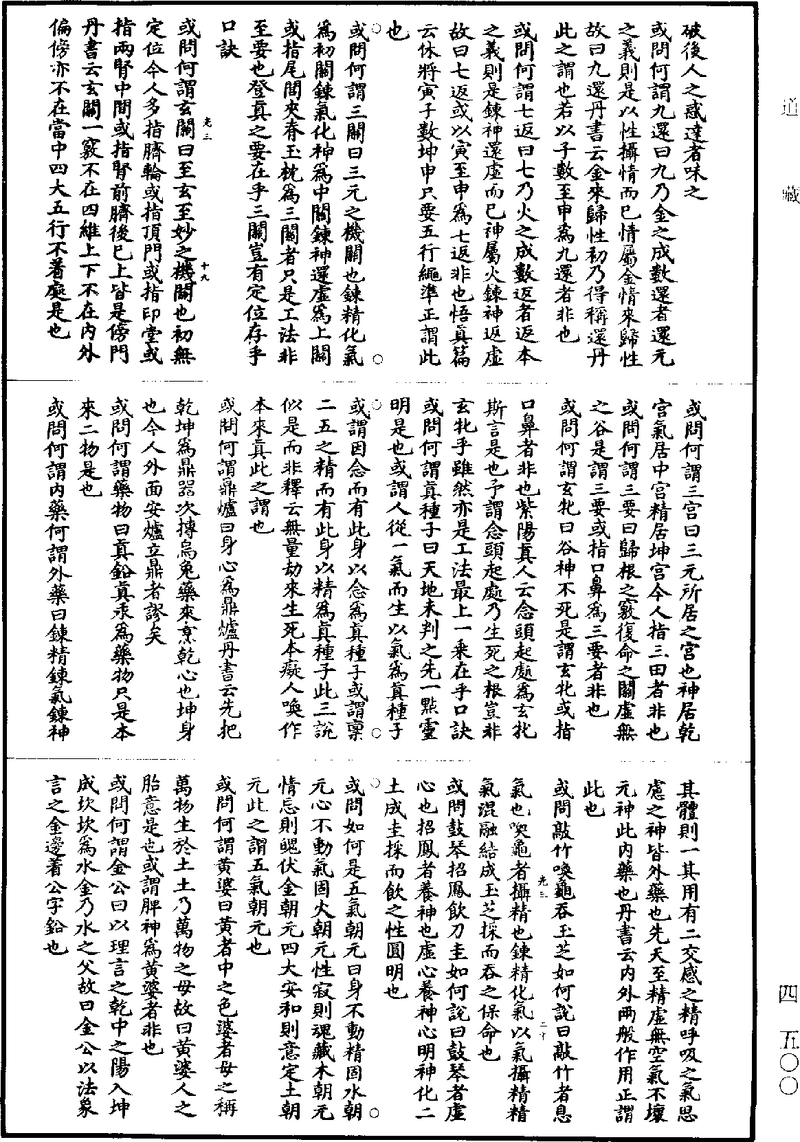 道藏
四　五〇〇
破後人之惑達者味之
或問何謂九還曰九乃金之成數還者還元
之義則是以性攝情而已情屬金情來歸性
故曰九還丹書云金來歸性初乃得稱還丹
此之謂也若以子數至申爲九還者非也
或問何謂七返曰七乃火之成數返者返本
之義則是鍊神還虛而已神屬火鍊神返虛
故曰七返或以寅至申爲七返非也悟真篇
云休將寅子數坤申只要五行繩準正謂此
也
或問何謂三關曰三元之機關也鍊精化氣
爲初關鍊氣化神爲中關鍊神還虛爲上關
或指尾閭夾脊玉枕爲三關者只是工法非
至要也登真之要在乎三關豈有定位存乎
口訣
或問何謂玄關曰至玄至妙之機關也初無
光三　十九
定位今人多指臍輪或指頂門或指印堂或
指兩腎中間或指腎前臍後已上皆是傍門
丹書云玄關一竅不在四維上下不在內外
偏傍亦不在當中四大五行不着處是也
或問何謂三宮曰三元所居之宮也神居乾
宮氣居中宮精居坤宮今人指三田者非也
或問何謂三要曰歸根之竅復命之關虛無
之谷是謂三要或指口鼻爲三要者非也
或問何謂玄牝曰谷神不死是謂玄牝或指
口鼻者非也紫陽真人云念頭起處爲玄牝
斯言是也予謂念頭起處乃生死之根豈非
玄牝乎雖然亦是工法最上一乘在乎口訣
或問何謂真種子曰天地未判之先一點靈
明是也或謂人從一氣而生以氣爲真種子
或謂因念而有此身以念爲真種子或謂稟
二五之精而有此身以精爲真種子此三說
似是而非釋云無量劫來生死本癡人喚作
本來真此之謂也
或問何謂鼎爐曰身心爲鼎爐丹書云先把
乾坤爲鼎器次摶烏兔藥來烹乾心也坤身
也今人外面安爐立鼎者謬矣
或問何謂藥物曰真鉛真汞爲藥物只是本
來二物是也
或問何謂內藥何謂外藥曰鍊精鍊氣鍊神
其體則一其用有二交感之精呼吸之氣思
慮之神皆外藥也先天至精虛無空氣不壞
元神此內藥也丹書云內外兩般作用正謂
此也
或問敲竹喚龜吞玉芝如何說曰敲竹者息
光三　二十
氣也喚龜者攝精也鍊精化氣以氣攝精精
氣混融結成玉芝採而吞之保命也
或問鼓琴招鳳飲刀圭如何說曰鼓琴者虛
心也招鳳者養神也虛心養神心明神化二
土成圭採而飲之性圓明也
或問如何是五氣朝元曰身不動精固水朝
元心不動氣固火朝元性寂則魂藏木朝元
情忘則魄伏金朝元四大安和則意定土朝
元此之謂五氣朝元也
或問何謂黃婆曰黃者中之色婆者母之稱
萬物生於土土乃萬物之母故曰黃婆人之
胎意是也或謂脾神爲黃婆者非也
或問何謂金公曰以理言之乾中之陽入坤
成坎坎爲水金乃水之父故曰金公以法象
言之金邊着公字鉛也